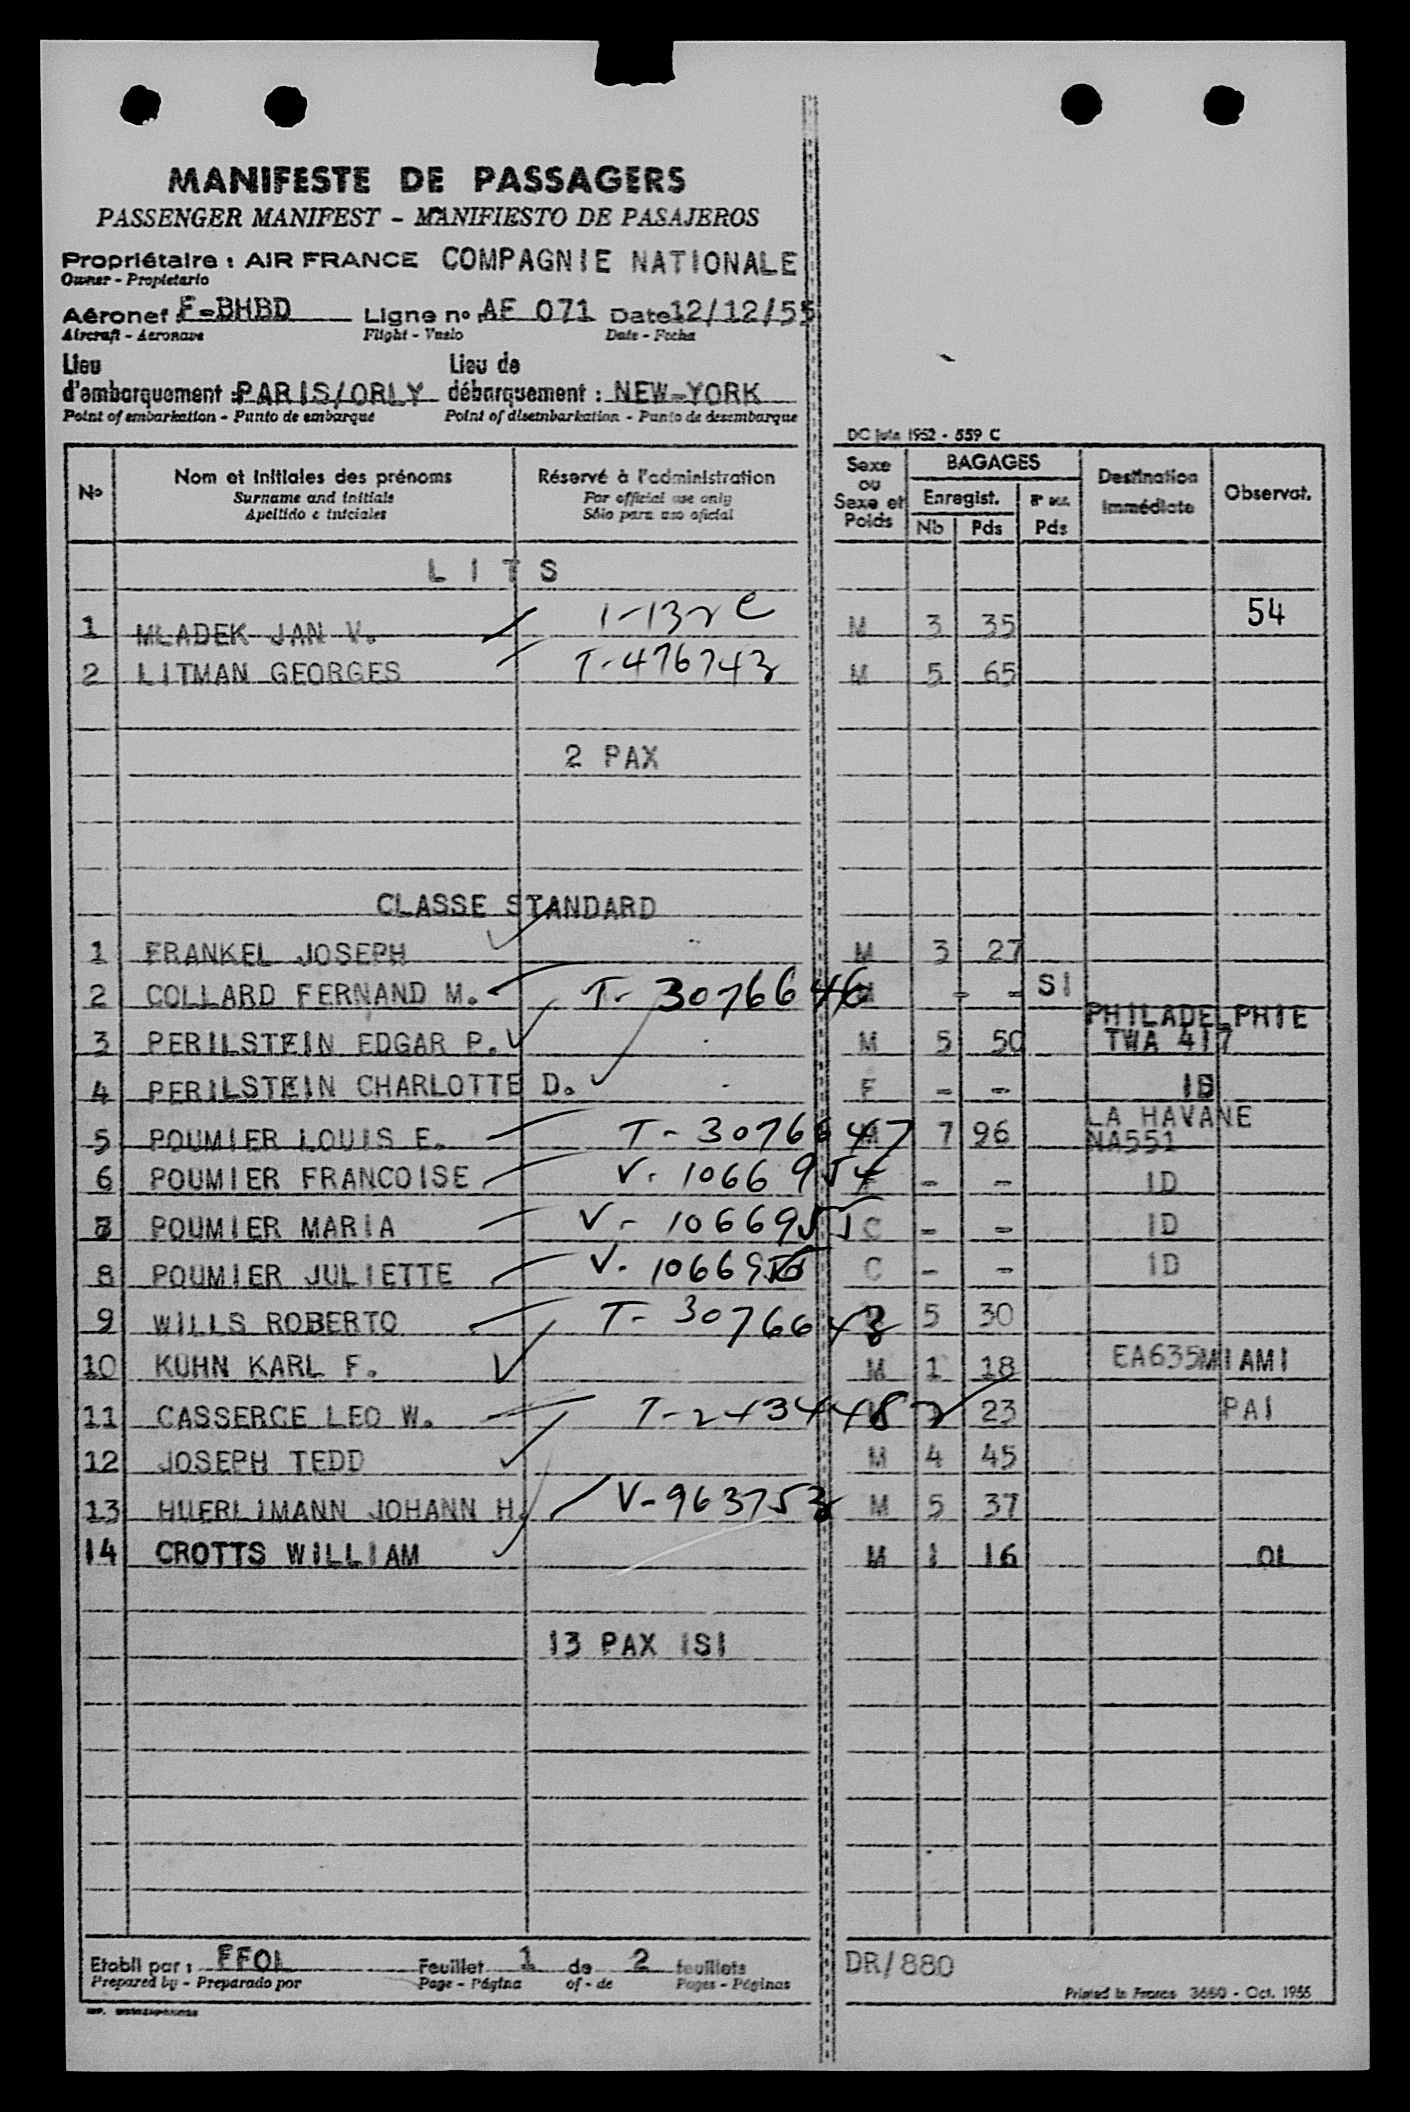 MANIFESTE DE PASSAGERS
PASSENGER MANIFEST - MANIFIESTO DE PASAJEROS
Propriétaire : AIR FRANCE COMPAGNIE NATIONALE
Owner - Propietario
Aéronef : F-BHBD Ligne no : AF 071 Date 12/12/55
Aircraft - Aeronave Flight - Vuelo Date - Fecha
Lieu d'embarquement : PARIS/ORLY Lieu de débarquement : NEW-YORK
Point of embarkation - Punto de embarque Point of disembarkation - Punto de desembarque
DC juin 1952 - 559 C
No Nom et Initiales des prénoms Réservé à l'administration Sexe ou Sexe et Poids BAGAGES Destination Immédiate Observat.
Surname and initials For official use only Enregist.
Apellido e iniciales Sólo para uso oficial Nb Pds Pds
L I T S
1 MLADEK JAN V. M 3 35 54
2 LITMAN GEORGES T-476743 M 5 65
2 PAX
CLASSE STANDARD
1 FRANKEL JOSEPH M 3 27
2 COLLARD FERNAND M. T-3076646 M - - SI
3 PERILSTEIN EDGAR P. M 5 50 PHILADELPHIE TWA 417
4 PERILSTEIN CHARLOTTE D. F - - ID
5 POUMIER LOUIS E. T-3076647 M 7 96 LA HAVANE NA551
6 POUMIER FRANCOISE V-1066954 F - - ID
POUMIER MARIA V-1066955 C - - ID
8 POUMIER JULIETTE V-106695 C - - ID
9 WILLS ROBERTO T-3076648 5 30
10 KUHN KARL F. M 1 18 EA635MIAMI
11 CASSERGE LEO W. T-243448 23 PAI
12 JOSEPH TEDD M 4 45
13 HUERLIMANN JOHANN H. V-963753 M 5 37
14 CROTTS WILLIAM M 1 16 OL
13 PAX ISI
Etabli par : FFOL Feuillet 1 de 2 feuillets DR/880
Prepared by - Preparado por Page - Página of - de Pages - Páginas
Printed in France 3650 - Oct. 1955